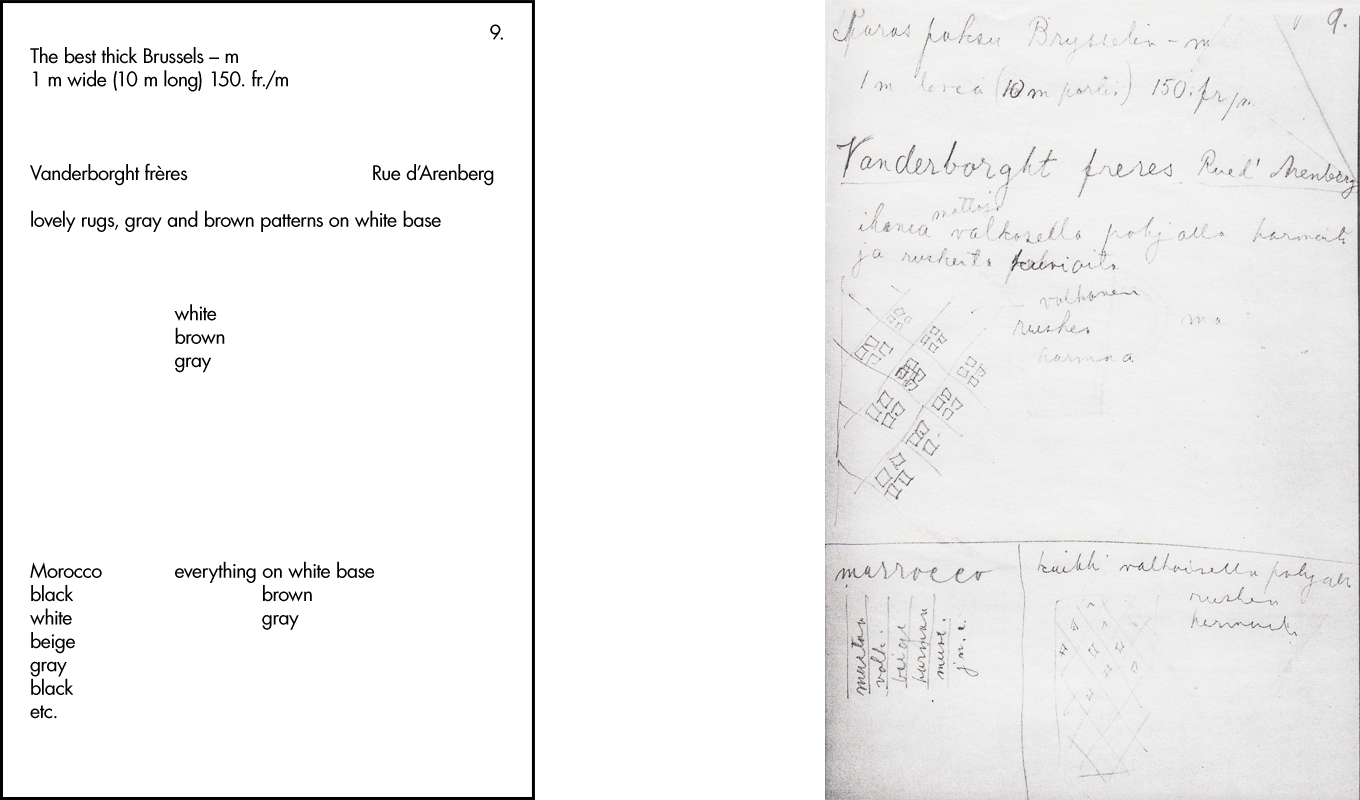 9.
The best thick Brussels – m
1 m wide (10 m long) 150. fr./m
Vanderborght frères Rue d’Arenberg
lovely rugs, gray and brown patterns on white base
white
brown
gray
Morocco everything on white base
black brown
white gray
beige
gray
black
etc.
9.
Paras paksu Brysselin – m
1 m leveä (10 m portti) 150. fr/m
Vanderborght freres Rue d' Arenberg
mattoja
ihania valkosella pohjalla harmaita
ja ruskeita kuvioita
valkonen
ruskea ma
harmaa
marrocco
kaikki valkoisella pohjalla
ruskea
harmaita
mustaa
valk.
beige
harmaa
must.
j.n.e.